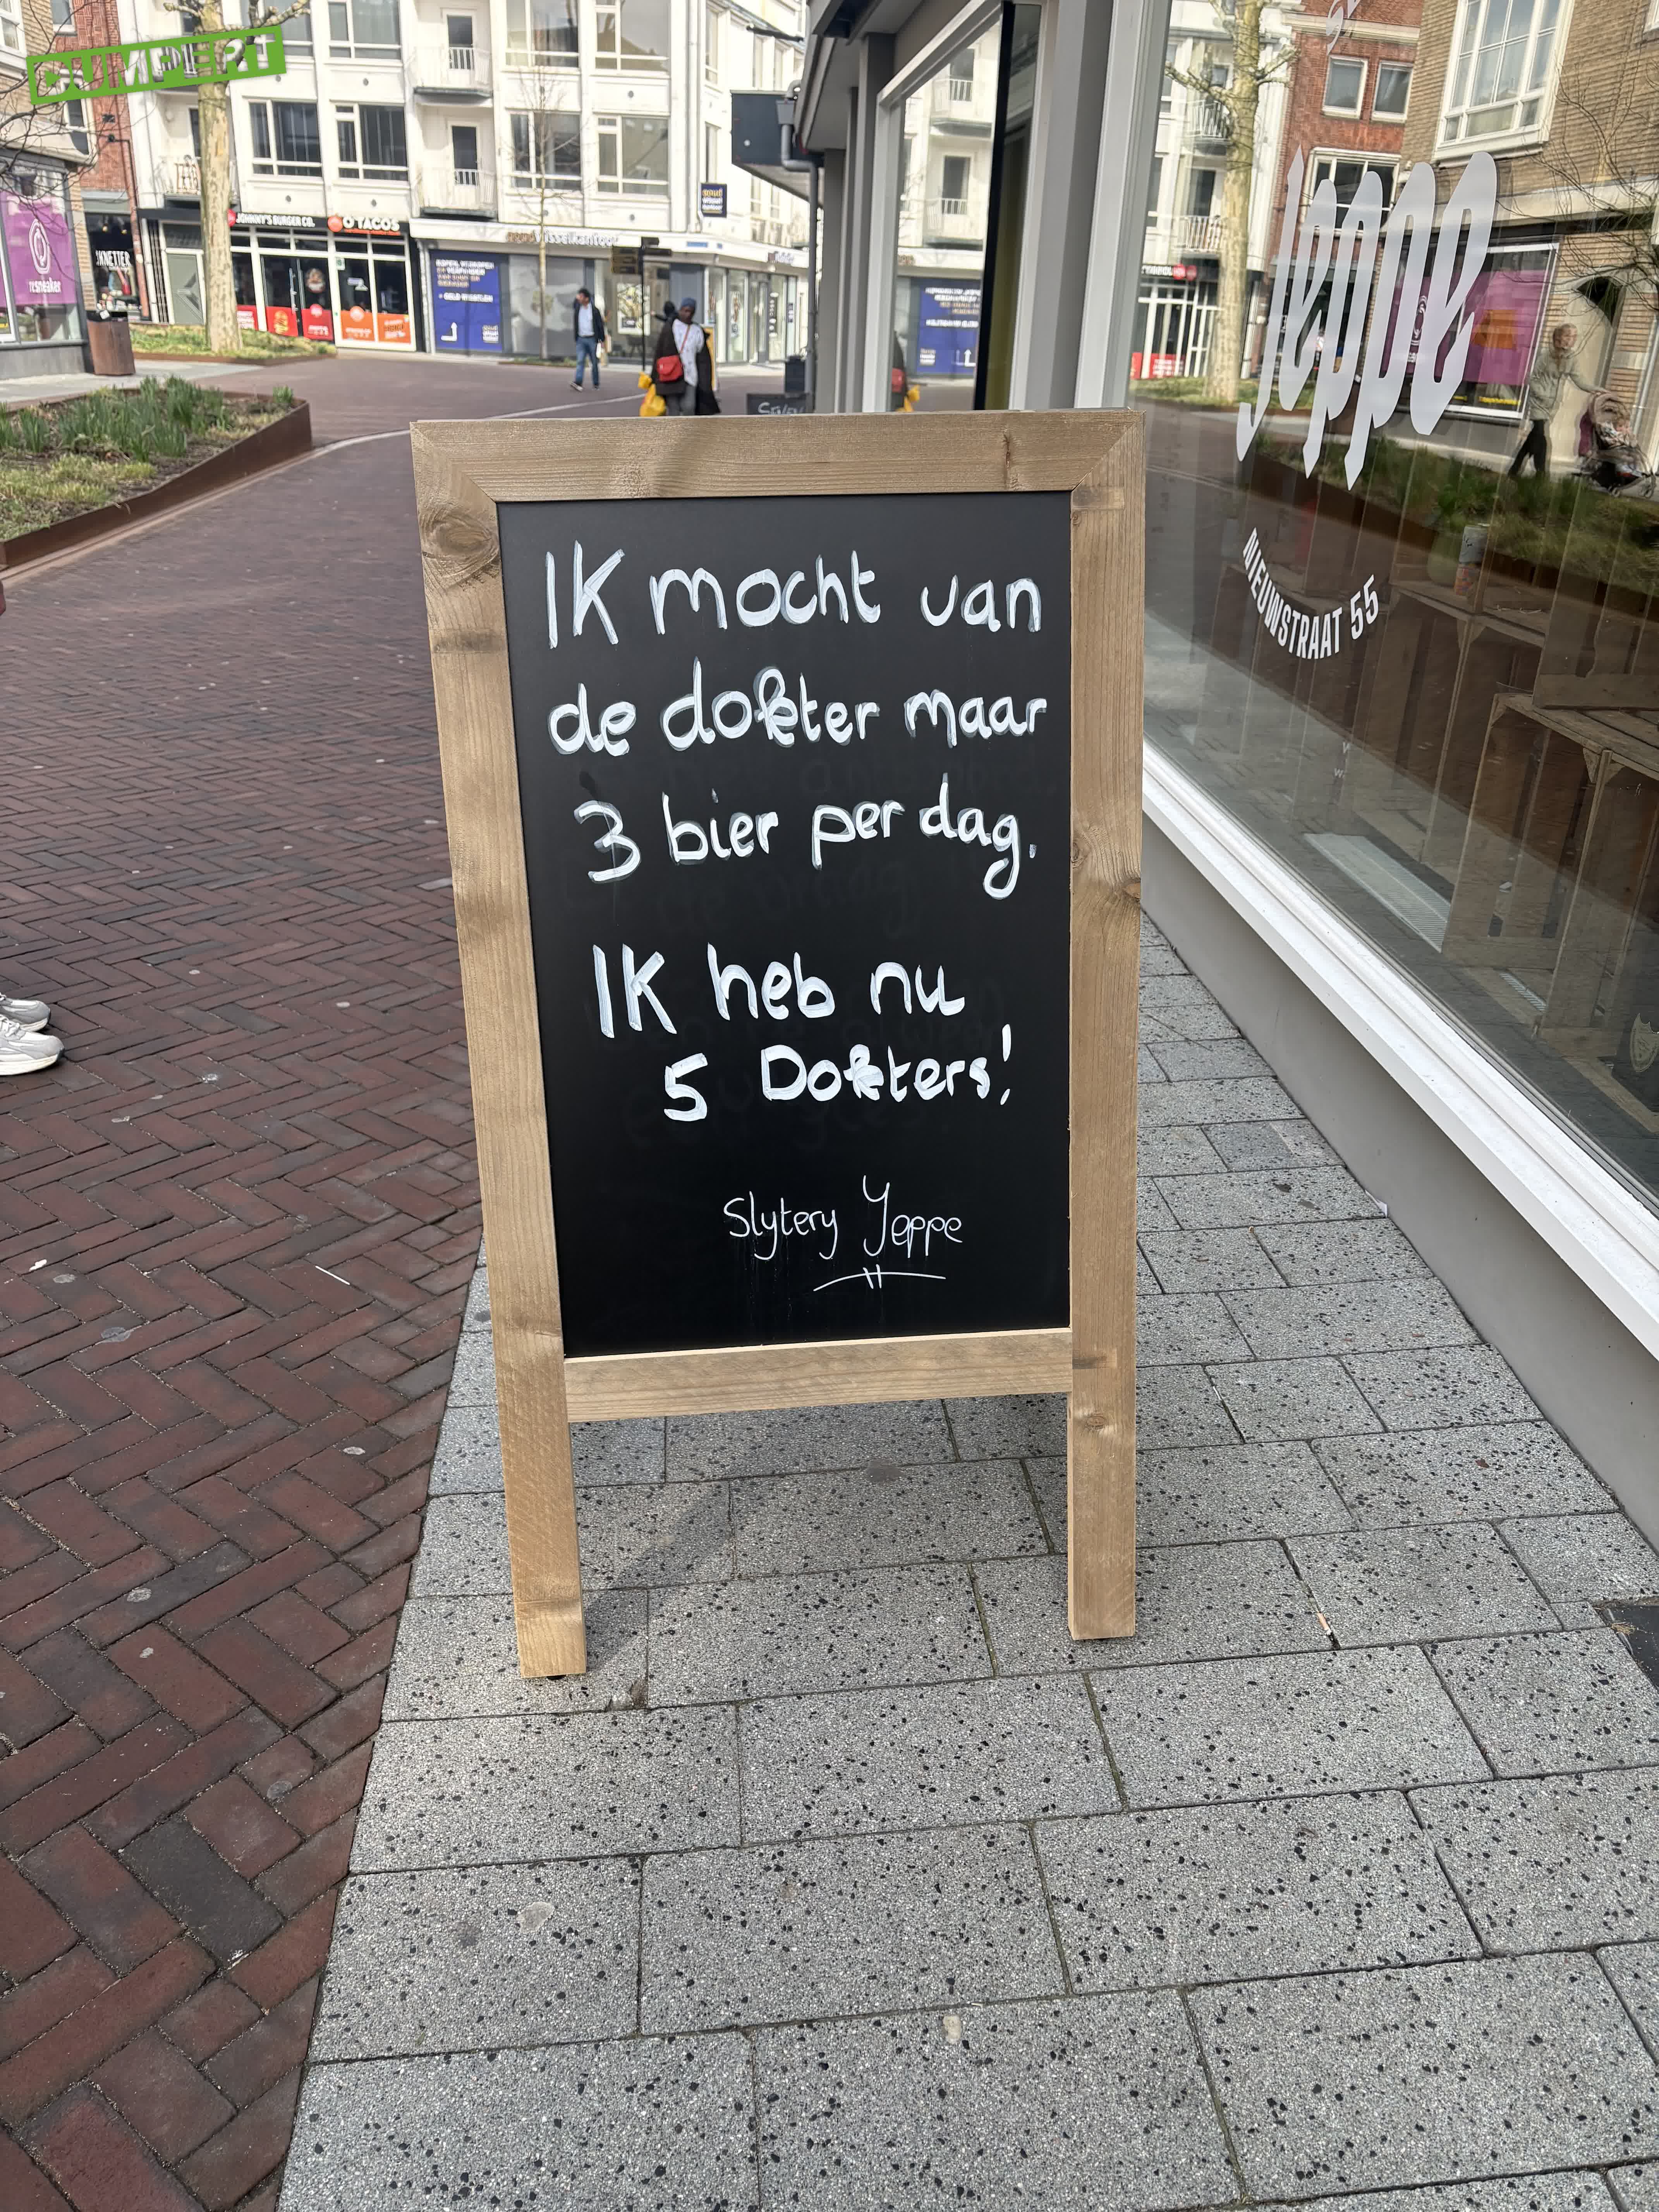 DUMPERT
JOHNNY'S BURGER CO.
O'TACOS
Jeppe
NIEUWSTRAAT 55
IK mocht van
de dokter maar
3 bier per dag.
IK heb nu
5 Dokters!
Slytery Jeppe